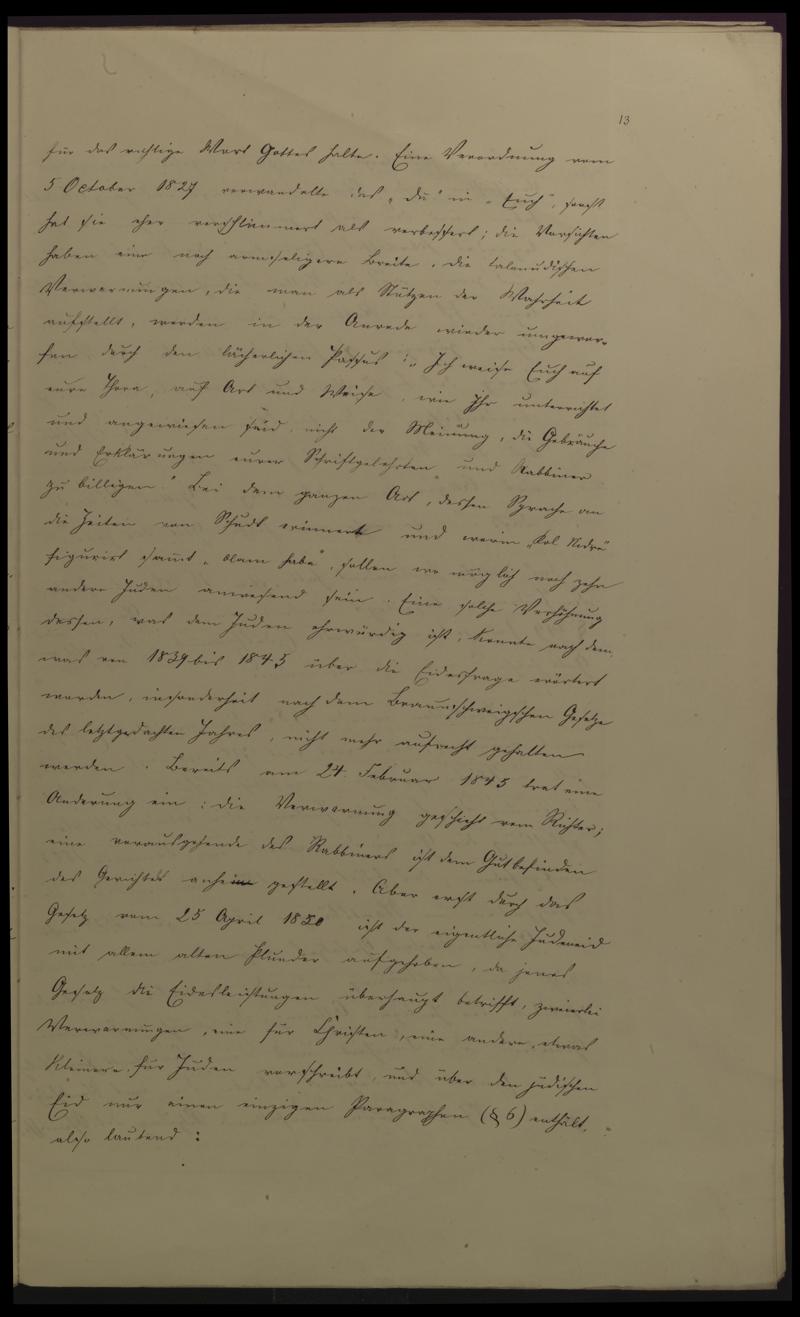 13
für das richtige Wort Gottes halte. Eine Verordnung vom
5 October 1827 verwandelte das „Du" in „Euch", sonst
hat sie eher verschlimmert als verbessert; die Vorsichten
haben eine noch armseligere Breite. Die talmudischen
Verwarnungen, die man als Stützen der Wahrheit
aufstellt, werden in der Anrede wieder umgewor-
fen durch den lächerlichen Passus: „Ich weise Euch auf
eure Thora, auf Art und Weise, wie Ihr unterrichtet
und angewiesen seid, nicht der Meinung, die Gebräuche
und Erklärungen eurer Schriftgelehrten und Rabbiner
zu billigen." Bei dem ganzen Act, dessen Sprache an
die Zeiten von Schudt erinnert und worin „Kol Nidre"
figurirt sammt „olam haba", sollen wo möglich noch zehn
andere Juden anwesend sein. Eine solche Verhöhnung
dessen, was dem Juden ehrwürdig ist, konnte nach dem,
was von 1839 bis 1845 über die Eidesfrage erörtert
worden, insonderheit nach dem Braunschweigschen Gesetze
des letztgedachten Jahres, nicht mehr aufrecht gehalten
werden. Bereits am 24. Februar 1845 trat eine
Änderung ein: die Verwarnung geschieht vom Richter;
eine vorausgehende des Rabbiners ist dem Gutbefinden
des Gerichtes anheim gestellt. Aber erst durch das
Gesetz vom 25 April 1850 ist der eigentliche Judeneid
mit allem alten Plunder aufgehoben, da jenes
Gesetz die Eidesleistungen überhaupt betrifft, zweierlei
Verwarnungen, eine für Christen, eine andere, etwas
kleinere für Juden vorschreibt, und über den jüdischen
Eid nur einen einzigen Paragraphen (§ 6) enthält,
also lautend: